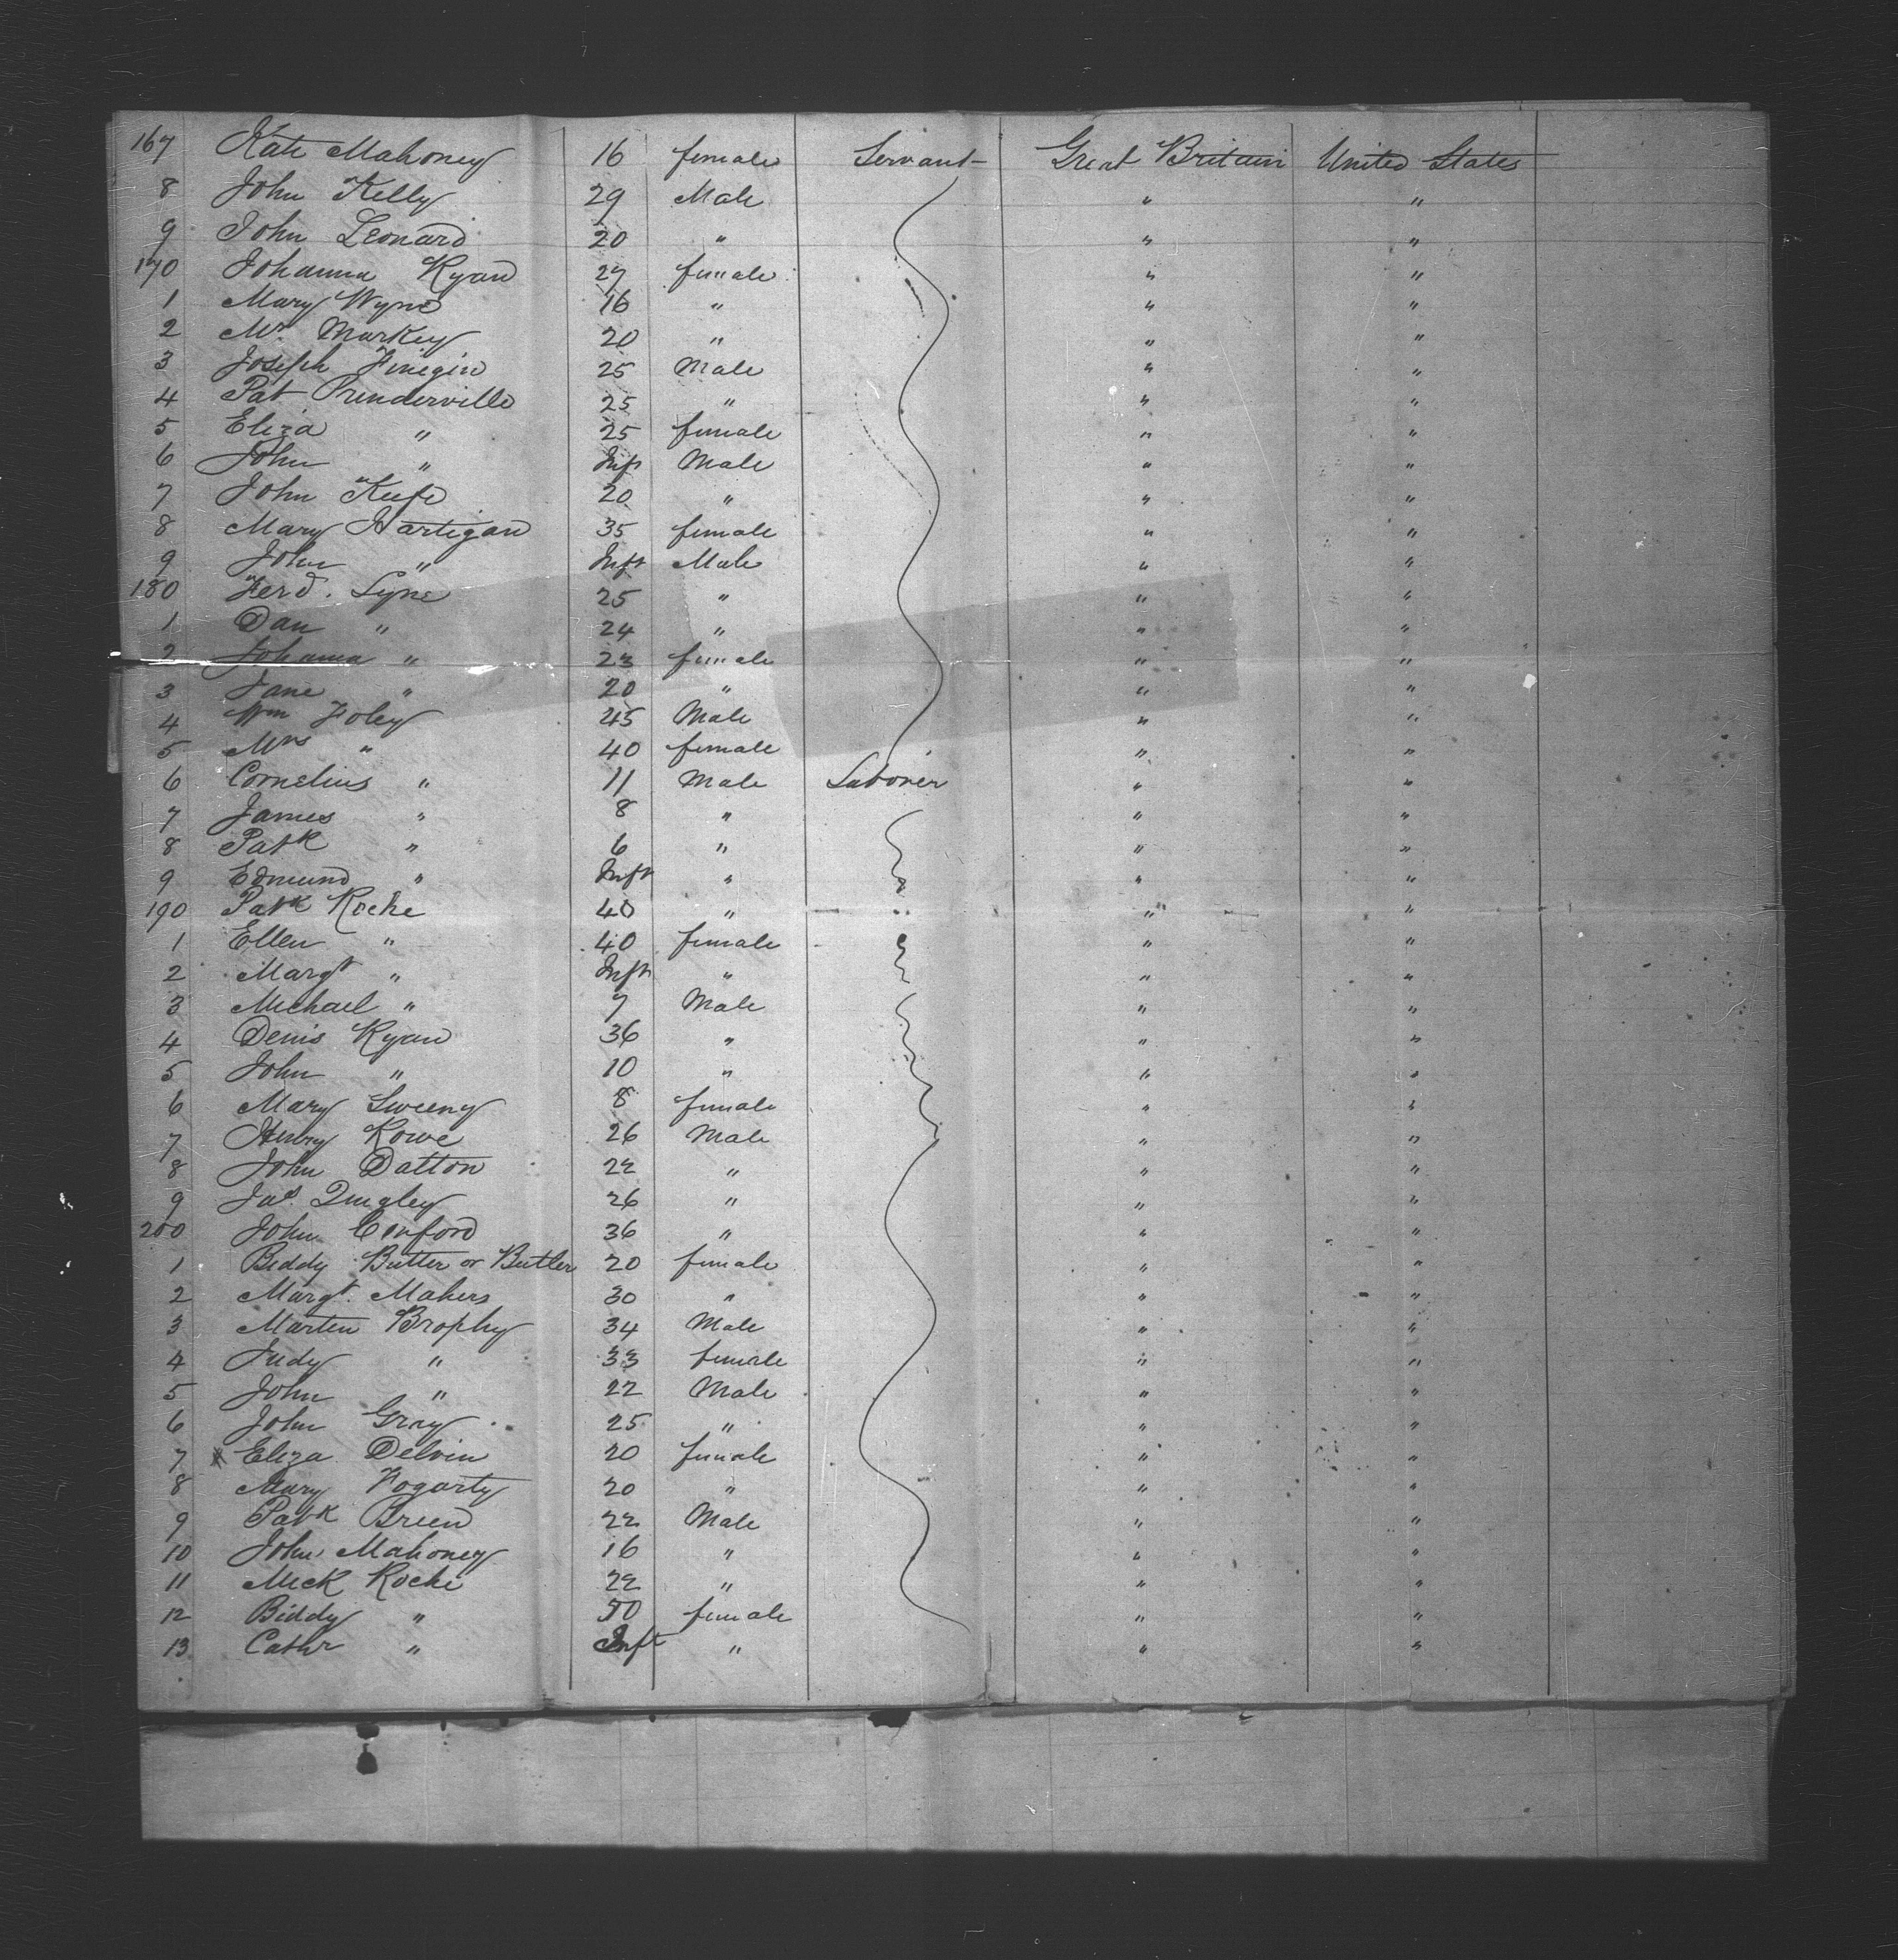 167 Kate Mahoney 16 female Servant Great Britain United States
8 John Kelly 29 Male " "
9 John Leonard 20 " " "
170 Johanna Ryan 27 female " "
1 Mary Wyne 16 " " "
2 Mr Markey 20 " " "
3 Joseph Finegin 25 Male " "
4 Pat Prunderville 25 " " "
5 Eliza " 25 female " "
6 John " Inft Male " "
7 John Keefe 20 " " "
8 Mary Hartigan 35 female " "
9 John " Inft Male " "
180 Ferd. Lyne 25 " " "
1 Dan " 24 " " "
2 Johanna " 23 female " "
3 Jane " 20 " " "
4 Wm Foley 45 Male " "
5 Mrs " 40 female " "
6 Cornelius " 11 Male Laborer " "
7 James " 8 " " "
8 Patk " 6 " " "
9 Edmund " Inft " " "
190 Patk Roche 40 " " "
1 Ellen " 40 female " "
2 Margt " Inft " " "
3 Michael " 7 Male " "
4 Denis Ryan 36 " " "
5 John " 10 " " "
6 Mary Sweeny 8 female " "
7 Henry Rowe 26 Male " "
8 John Datton 22 " " "
9 Jas Quigley 26 " " "
200 John Conford 36 " " "
1 Biddy Butter or Butler 20 female " "
2 Margt. Mahers 30 " " "
3 Marten Brophy 34 Male " "
4 Judy " 33 female " "
5 John " 22 Male " "
6 John Gray 25 " " "
7 Eliza Delvin 20 female " "
8 Mary Fogarty 20 " " "
9 Patk Breen 22 Male " "
10 John Mahoney 16 " " "
11 Mick Roche 22 " " "
12 Biddy " 50 female " "
13 Cathr " Inft " " "